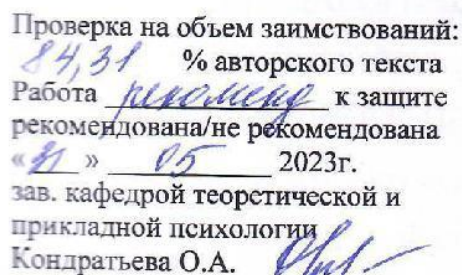 Проверка на объем заимствований:
84,31 % авторского текста
Работа рекоменд к защите
рекомендована/не рекомендована
« 31 » 05 2023г.
зав. кафедрой теоретической и
прикладной психологии
Кондратьева О.А.